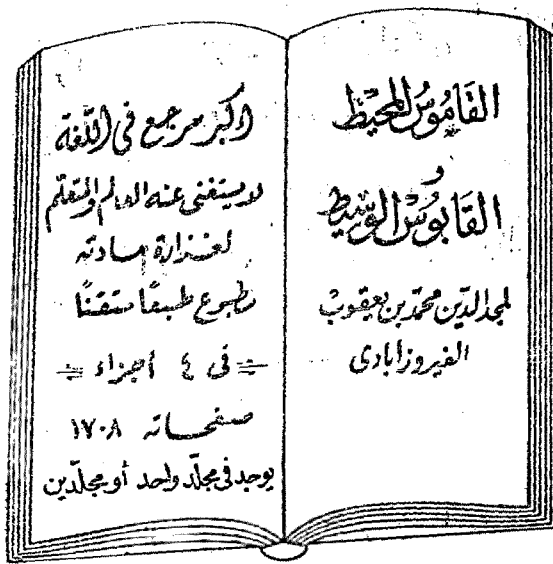 القَامُوسُ المحِيْط
و
القَابُوسُ الوَسِيْط
لمجد الدّين محمّد بن يعقوب
الفيروزابادى
اكبر مرجع في اللّغة
لا يستغنى عنه العالم والمتعلّم
لغزارة مادته
مطبوع طبعًا متقنًا
في ٤ أجزاء
صفحاته ١٧٠٨
يوجد في مجلّد واحد أو مجلّدين